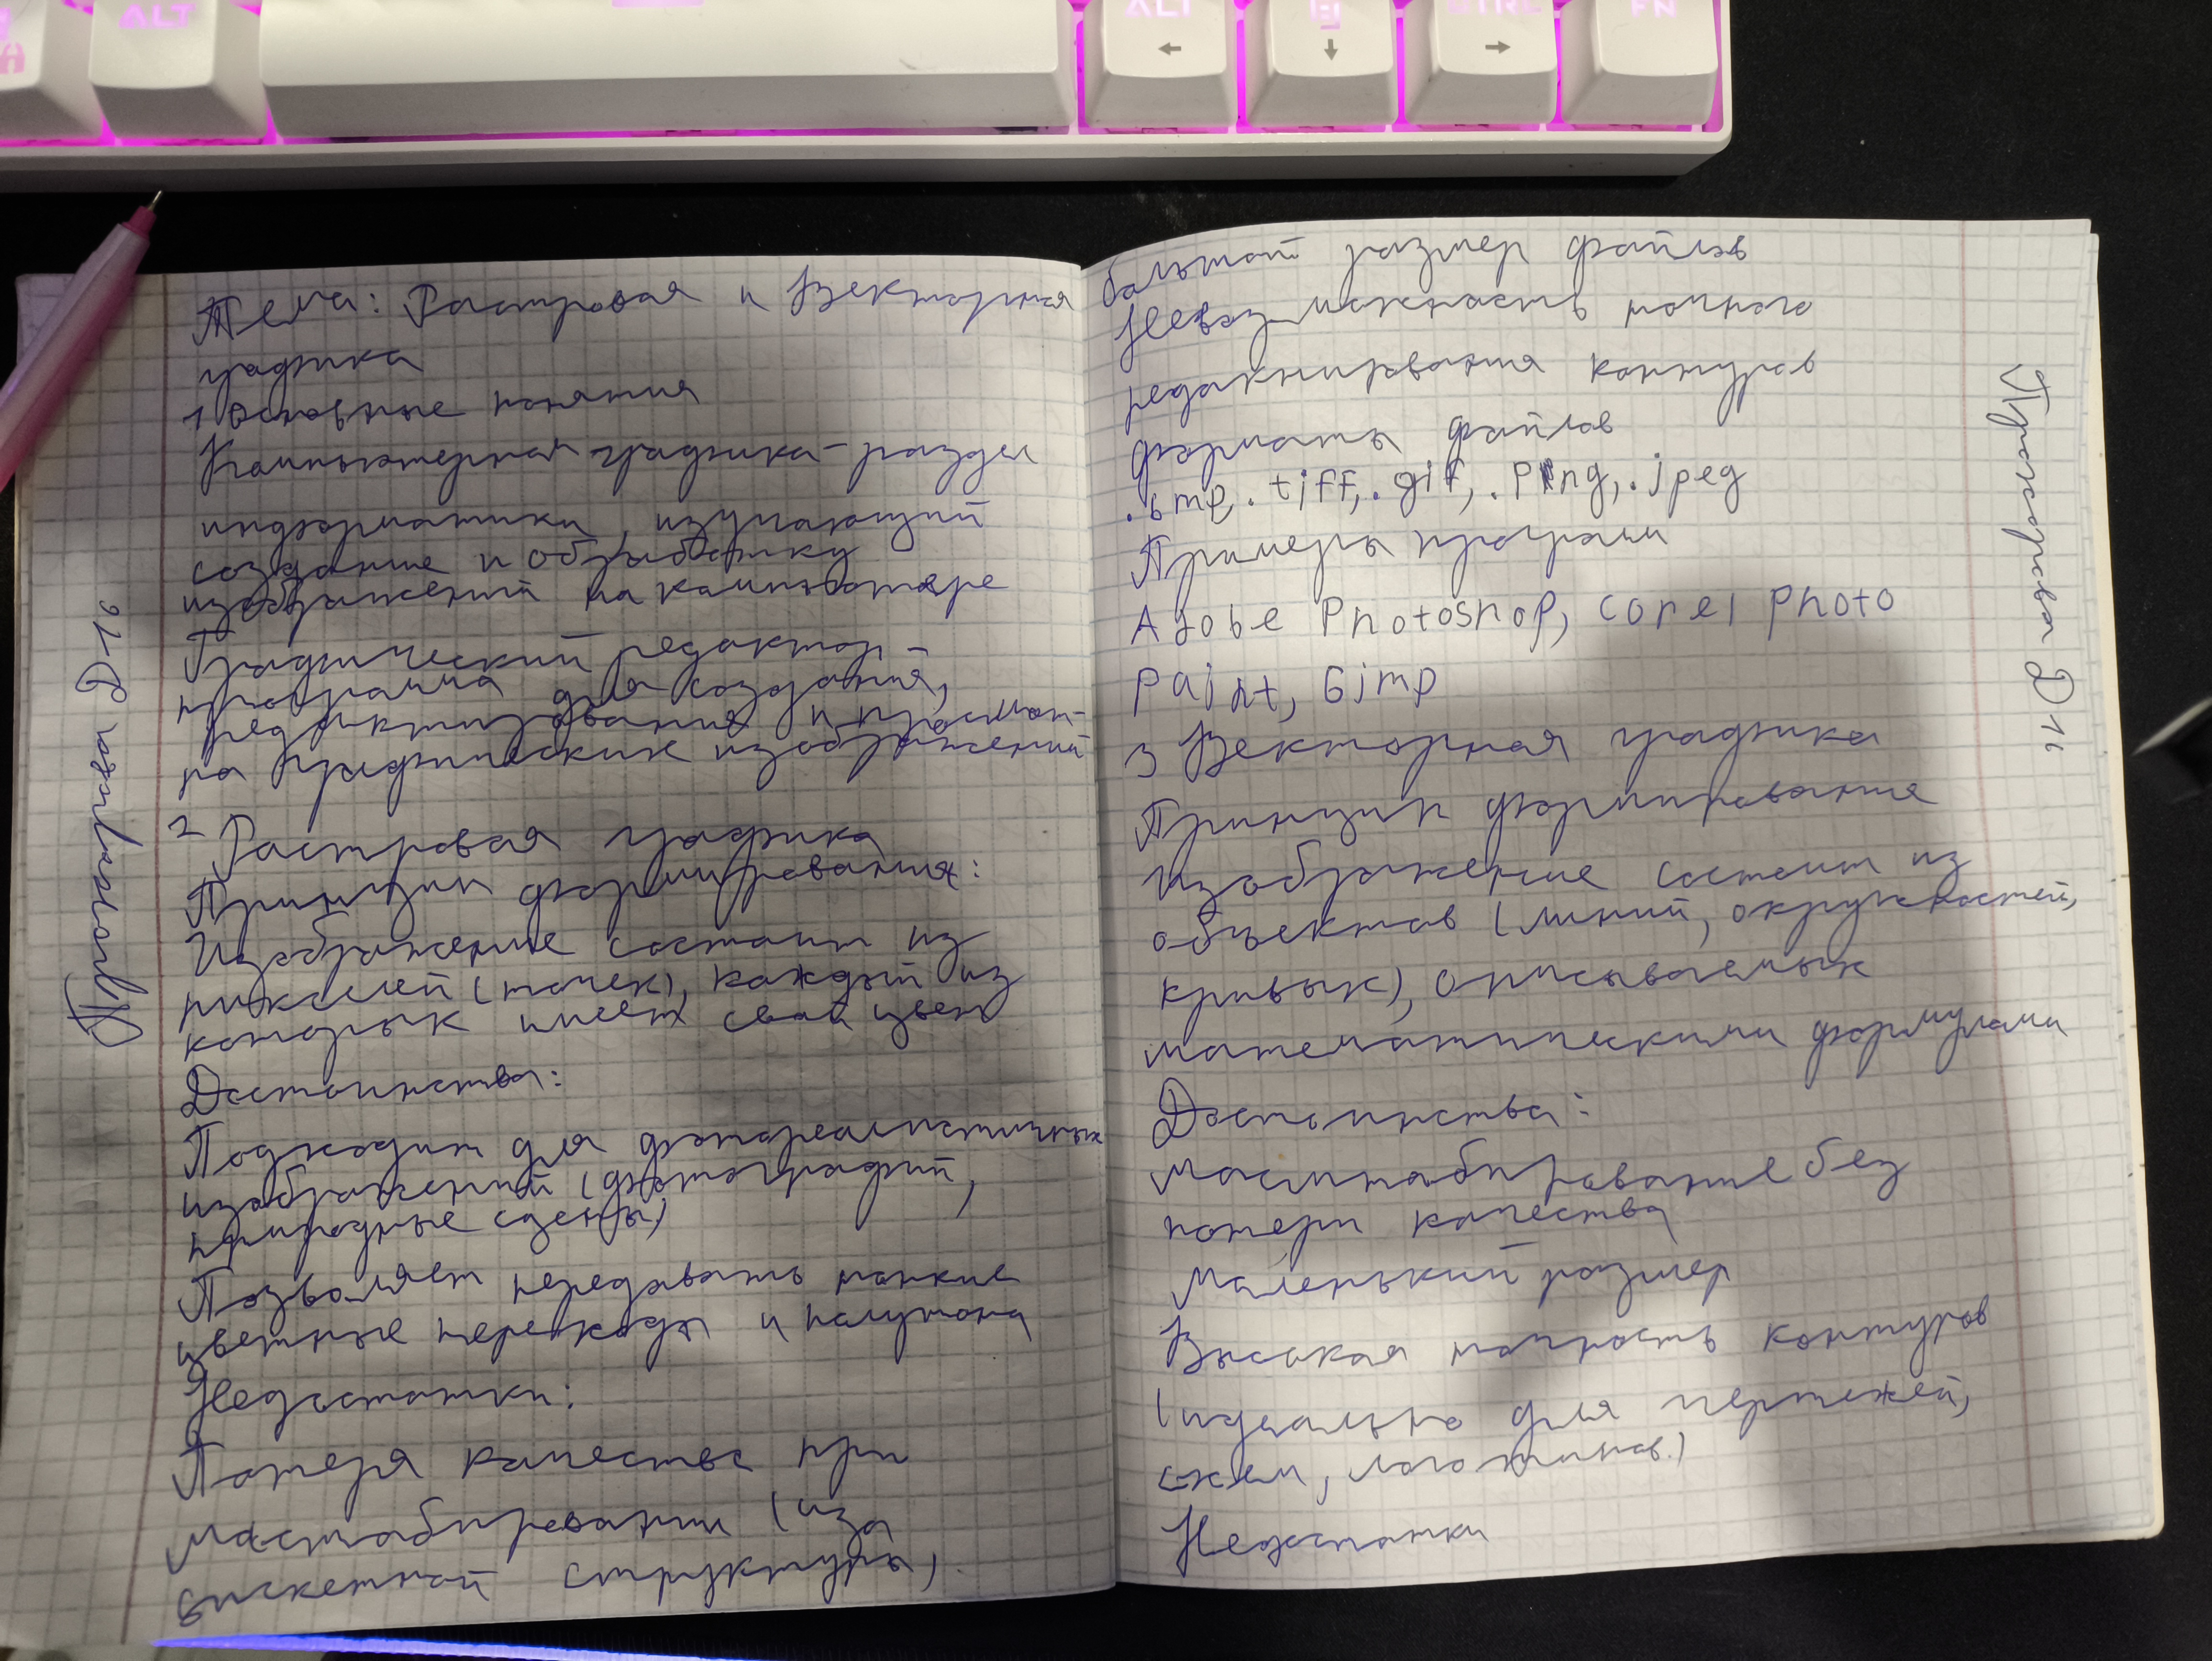 ALT
ALT
CTRL
FN
Тема: Растровая и Векторная
графика
1 Основные понятия
Компьютерная графика - раздел
информатики, изучающий
создание и обработку
изображений на компьютере
Графический редактор -
программа для создания,
редактирования и просмот-
ра графических изображений
2 Растровая графика
Принцип формирования:
Изображение состоит из
пикселей (точек), каждый из
которых имеет свой цвет
Достоинства:
Подходит для фотореалистичных
изображений (фотографий,
природные сцены)
Позволяет передавать тонкие
цветные переходы и полутона
Недостатки:
Потеря качества при
масштабировании (из за
структуры)
большой размер файлов
Невозможность точного
редактирования контуров
форматы файлов
.bmp, .tiff, .gif, .png, .jpeg
Примеры программ
Adobe Photoshop, Corel Photo
Paint, Gimp
3 Векторная графика
Принцип формирование
Изображение состоит из
объектов (линий, окружностей,
кривых), описываемых
математическими формулами
Достоинства:
Масштабирование без
потери качества
Маленький размер
Высокая точность контуров
(идеально для чертежей,
схем, логотипов.)
Недостатки